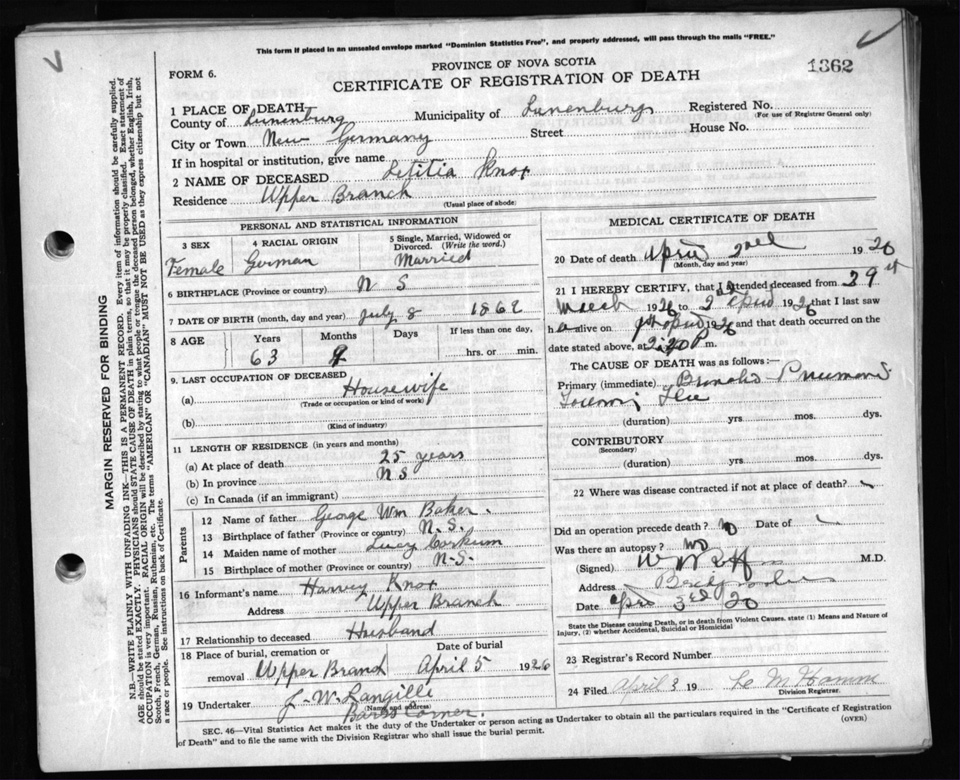 This form if placed in an unsealed envelope marked "Dominion Statistics Free", and properly addressed, will pass through the mails "FREE."
PROVINCE OF NOVA SCOTIA
FORM 6.
CERTIFICATE OF REGISTRATION OF DEATH
1362
1 PLACE OF DEATH
County of Lunenburg Municipality of Lunenburg Registered No.
(For use of Registrar General only)
City or Town New Germany Street House No.
If in hospital or institution, give name
2 NAME OF DECEASED Letitia Knox
Residence Upper Branch
(Usual place of abode)
PERSONAL AND STATISTICAL INFORMATION
3 SEX 4 RACIAL ORIGIN 5 Single, Married, Widowed or Divorced. (Write the word.)
Female German Married
6 BIRTHPLACE (Province or country) N S
7 DATE OF BIRTH (month, day and year) July 8 1862
8 AGE Years Months Days If less than one day,
63 9 hrs. or min.
9. LAST OCCUPATION OF DECEASED
(a) Housewife
(Trade or occupation or kind of work)
(b)
(Kind of industry)
11 LENGTH OF RESIDENCE (in years and months)
(a) At place of death 25 years
(b) In province N S
(c) In Canada (if an immigrant)
Parents
12 Name of father George Wm Baker.
13 Birthplace of father (Province or country) N.S.
14 Maiden name of mother Lucy Corkum
15 Birthplace of mother (Province or country) N.S.
16 Informant's name Harvey Knox
Address Upper Branch
17 Relationship to deceased Husband
18 Place of burial, cremation or removal Upper Branch
Date of burial April 5 1926
19 Undertaker J. W. Langille
(Name and address)
Barss Corner.
MEDICAL CERTIFICATE OF DEATH
20 Date of death April 2nd 1926
(Month, day and year)
21 I HEREBY CERTIFY, that I attended deceased from 29
March 1926 to 2nd April 1926 that I last saw
h alive on April 1926 and that death occurred on the
date stated above, at m.
The CAUSE OF DEATH was as follows:—
Primary (immediate) Broncho Pneumonia
following Flu
(duration) yrs. mos. dys.
CONTRIBUTORY
(Secondary)
(duration) yrs. mos. dys.
22 Where was disease contracted if not at place of death?
Did an operation precede death? no Date of
Was there an autopsy? no
(Signed) M.D.
Address
Date Apr 3rd
State the Disease causing Death, or in death from Violent Causes, state (1) Means and Nature of
Injury, (2) whether Accidental, Suicidal or Homicidal
23 Registrar's Record Number
24 Filed April 3 19
Division Registrar.
SEC. 46—Vital Statistics Act makes it the duty of the Undertaker or person acting as Undertaker to obtain all the particulars required in the "Certificate of Registration
of Death" and to file the same with the Division Registrar who shall issue the burial permit.
(OVER)
MARGIN RESERVED FOR BINDING
N.B.—WRITE PLAINLY WITH UNFADING INK—THIS IS A PERMANENT RECORD. Every item of information should be carefully supplied.
AGE should be stated EXACTLY. PHYSICIANS should STATE CAUSE OF DEATH in plain terms, so that it may be properly classified. Exact statement of
OCCUPATION is very important. RACIAL ORIGIN will be described by stating to what people or tongue the deceased person belonged, whether English, Irish,
Scotch, French, German, Russian, Ruthenian, etc. The terms "AMERICAN" or "CANADIAN" MUST NOT BE USED as they express citizenship but not
a race or people. See instructions on back of Certificate.